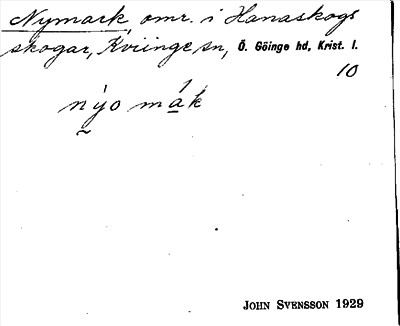 Nymark, omr. i Hanaskogs
skogar, Kviinge sn, Ö. Göinge hd, Krist. l.
10
nyo mak
JOHN SVENSSON 1929